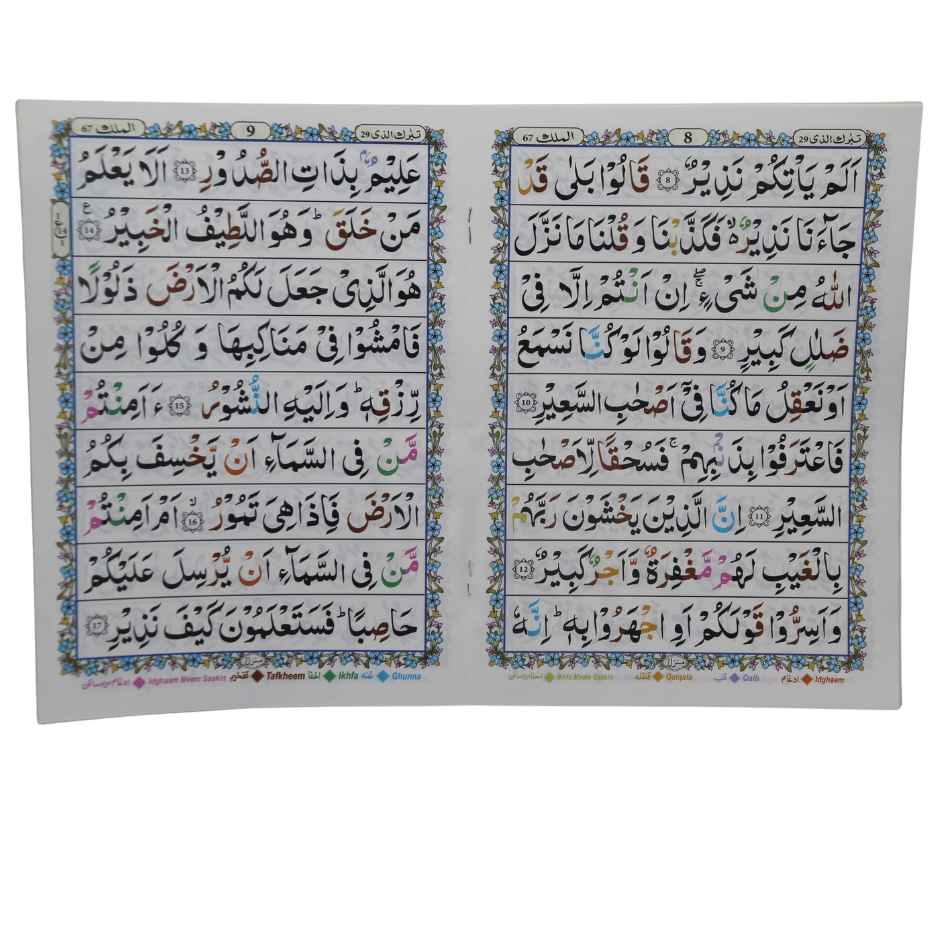 تبٰرك الذی 29
8
الملك 67
اَلَمْ يَاْتِكُمْ نَذِيْرٌ ۝8 قَالُوْا بَلٰى قَدْ
جَآءَنَا نَذِيْرٌ ۙ فَكَذَّبْنَا وَ قُلْنَا مَا نَزَّلَ
اللّٰهُ مِنْ شَیْءٍ ۚۖ اِنْ اَنْتُمْ اِلَّا فِیْ
ضَلٰلٍ كَبِيْرٍ ۝9 وَقَالُوْا لَوْ كُنَّا نَسْمَعُ
اَوْ نَعْقِلُ مَا كُنَّا فِیْۤ اَصْحٰبِ السَّعِيْرِ ۝10
فَاعْتَرَفُوْا بِذَنْۢبِهِمْ ۚ فَسُحْقًا لِّاَصْحٰبِ
السَّعِيْرِ ۝11 اِنَّ الَّذِيْنَ يَخْشَوْنَ رَبَّهُمْ
بِالْغَيْبِ لَهُمْ مَّغْفِرَةٌ وَّاَجْرٌ كَبِيْرٌ ۝12
وَاَسِرُّوْا قَوْلَكُمْ اَوِ اجْهَرُوْا بِهٖ ؕ اِنَّهٗ
منزل
Idghaam ادغام Qalb قلب Qalqala قلقله Ikhfa Meem Saakin اخفا ميم ساكن
تبٰرك الذی 29
9
الملك 67
عَلِيْمٌۢ بِذَاتِ الصُّدُوْرِ ۝13 اَلَا يَعْلَمُ
مَنْ خَلَقَ ؕ وَهُوَ اللَّطِيْفُ الْخَبِيْرُ ۝14 ع
1
ع 14
1
هُوَ الَّذِیْ جَعَلَ لَكُمُ الْاَرْضَ ذَلُوْلًا
فَامْشُوْا فِیْ مَنَاكِبِهَا وَ كُلُوْا مِنْ
رِّزْقِهٖ ؕ وَاِلَيْهِ النُّشُوْرُ ۝15 ءَاَمِنْتُمْ
مَّنْ فِی السَّمَآءِ اَنْ يَّخْسِفَ بِكُمُ
الْاَرْضَ فَاِذَا هِیَ تَمُوْرُ ۙ ۝16 اَمْ اَمِنْتُمْ
مَّنْ فِی السَّمَآءِ اَنْ يُّرْسِلَ عَلَيْكُمْ
حَاصِبًا ؕ فَسَتَعْلَمُوْنَ كَيْفَ نَذِيْرِ ۝17
منزل
Ghunna غُنّه Ikhfa اخفا Tafkheem تفخيم Idghaam Meem Saakin ادغام ميم ساكن